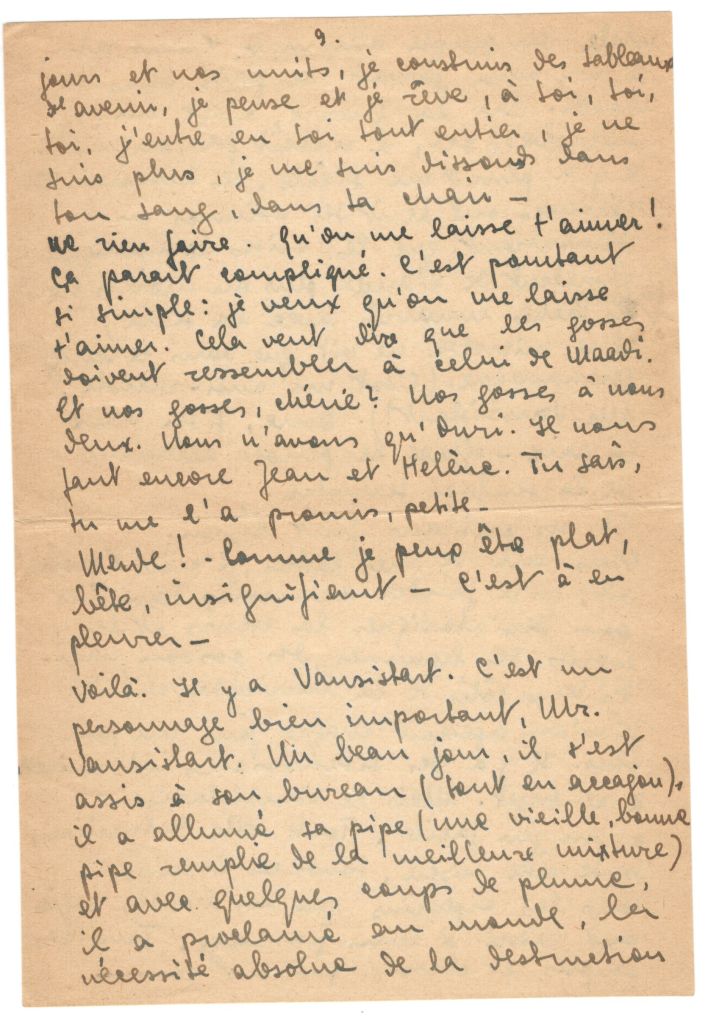 9.
jours et nos nuits, je construis des tableaux
d'avenir, je pense et je rêve, à toi, toi,
toi, j'entre en toi tout entier, je ne
suis plus, je me suis dissous dans
ton sang, dans ta chair –
ne rien faire. Qu'on me laisse t'aimer!
Ça parait compliqué. C'est pourtant
si simple: je veux qu'on me laisse
t'aimer. Cela veut dire que les gosses
doivent ressembler à celui de Maadi.
Et nos gosses, chérie? Nos gosses à nous
deux. Nous n'avons qu'Ouri. Il nous
faut encore Jean et Helène. Tu sais,
tu me l'a promis, petite –
Merde! – Comme je peux être plat,
bête, insignifiant – C'est à en
pleurer –
Voilà. Il y a Vansistart. C'est un
personnage bien important, Mr.
Vansistart. Un beau jour, il s'est
assis à son bureau (tout en accajou),
il a allumé sa pipe (une vieille, bonne
pipe remplie de la meilleure mixture)
et avec quelques coups de plume,
il a proclamé au monde, la
nécessité absolue de la destruction